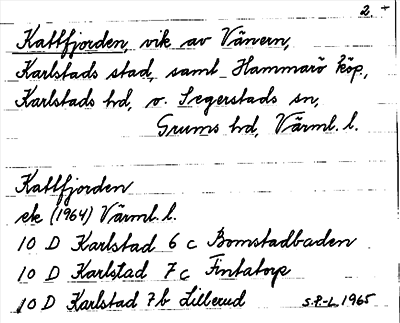 2 +
Kattfjorden, vik av Vänern,
Karlstads stad, samt Hammarö köp,
Karlstads hd, o. Segerstads sn,
Grums hd, Värml. l.
Kattfjorden
ek (1964) Värml. l.
10 D Karlstad 6 c Bomstadbaden
10 D Karlstad 7 c Fintatorp
10 D Karlstad 7 b Lillerud S.P-L 1965